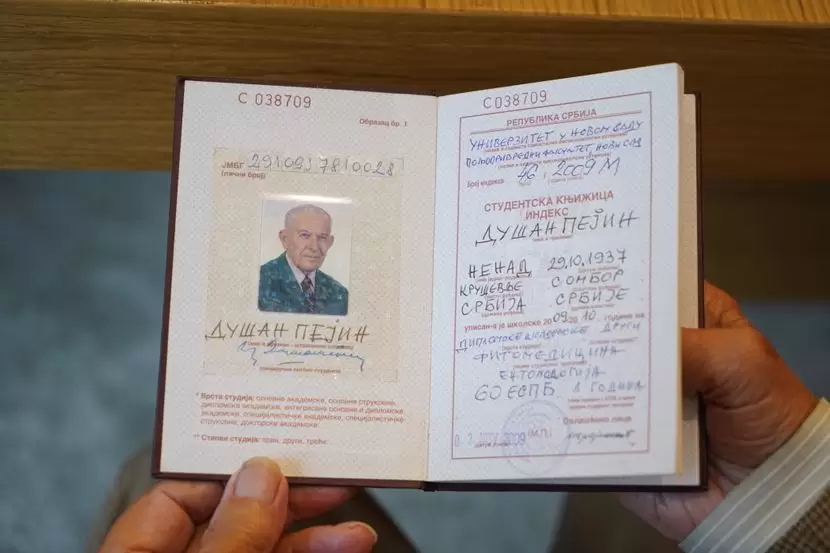 С 038709
Образац бр. 1
ЈМБГ 2910937810028
(лични број)
ДУШАН ПЕЈИН
* Врста студија: основне академске, основне струковне,
дипломске академске, интегрисане основне и дипломске
академске, специјалистичке академске, специјалистичке
струковне, докторске академске.
** Степен студија: први, други, трећи.
С 038709
РЕПУБЛИКА СРБИЈА
УНИВЕРЗИТЕТ У НОВОМ САДУ
ПОЉОПРИВРЕДНИ ФАКУЛТЕТ, НОВИ САД
Број индекса 46 2009 М
СТУДЕНТСКА КЊИЖИЦА
ИНДЕКС
ДУШАН ПЕЈИН
НЕНАД 29.10.1937
КРУШЕВЉЕ СОМБОР
СРБИЈА СРБИЈЕ
уписан-а је школске 2009/2010 године на
ДИПЛОМСКЕ АКАДЕМСКЕ ДРУГИ
ФИТОМЕДИЦИНА
60 ЕСПБ 1 ГОДИНА
Овлашћено лице
2009 (М.П.)